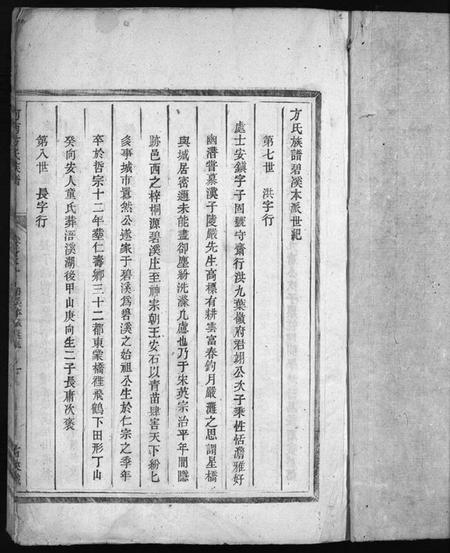 方氏族譜碧溪本派世紀
第七世　洪字行
處士安鎮字子固號守齋行洪九葉嶺府君翊公次子秉性恬澹雅好
幽潛嘗慕漢子陵嚴先生高標有耕雲富春釣月嚴灘之思謂星橋
與城居密邇未能盡卻塵紛洗滌几慮也乃于宋英宗治平年間隱
跡邑西之梓桐源碧溪庄至神宗朝王安石以青苗肆害天下紛匕
多事城市囂然公遂家于碧溪為碧溪之始祖公生於仁宗之季年
卒於哲宗十二年葬仁壽鄉三十二都東棠橋徃飛鶴下田形丁山
癸向安人童氏葬浯溪湖後甲山庚向生二子長庸次袞
第八世　長字行